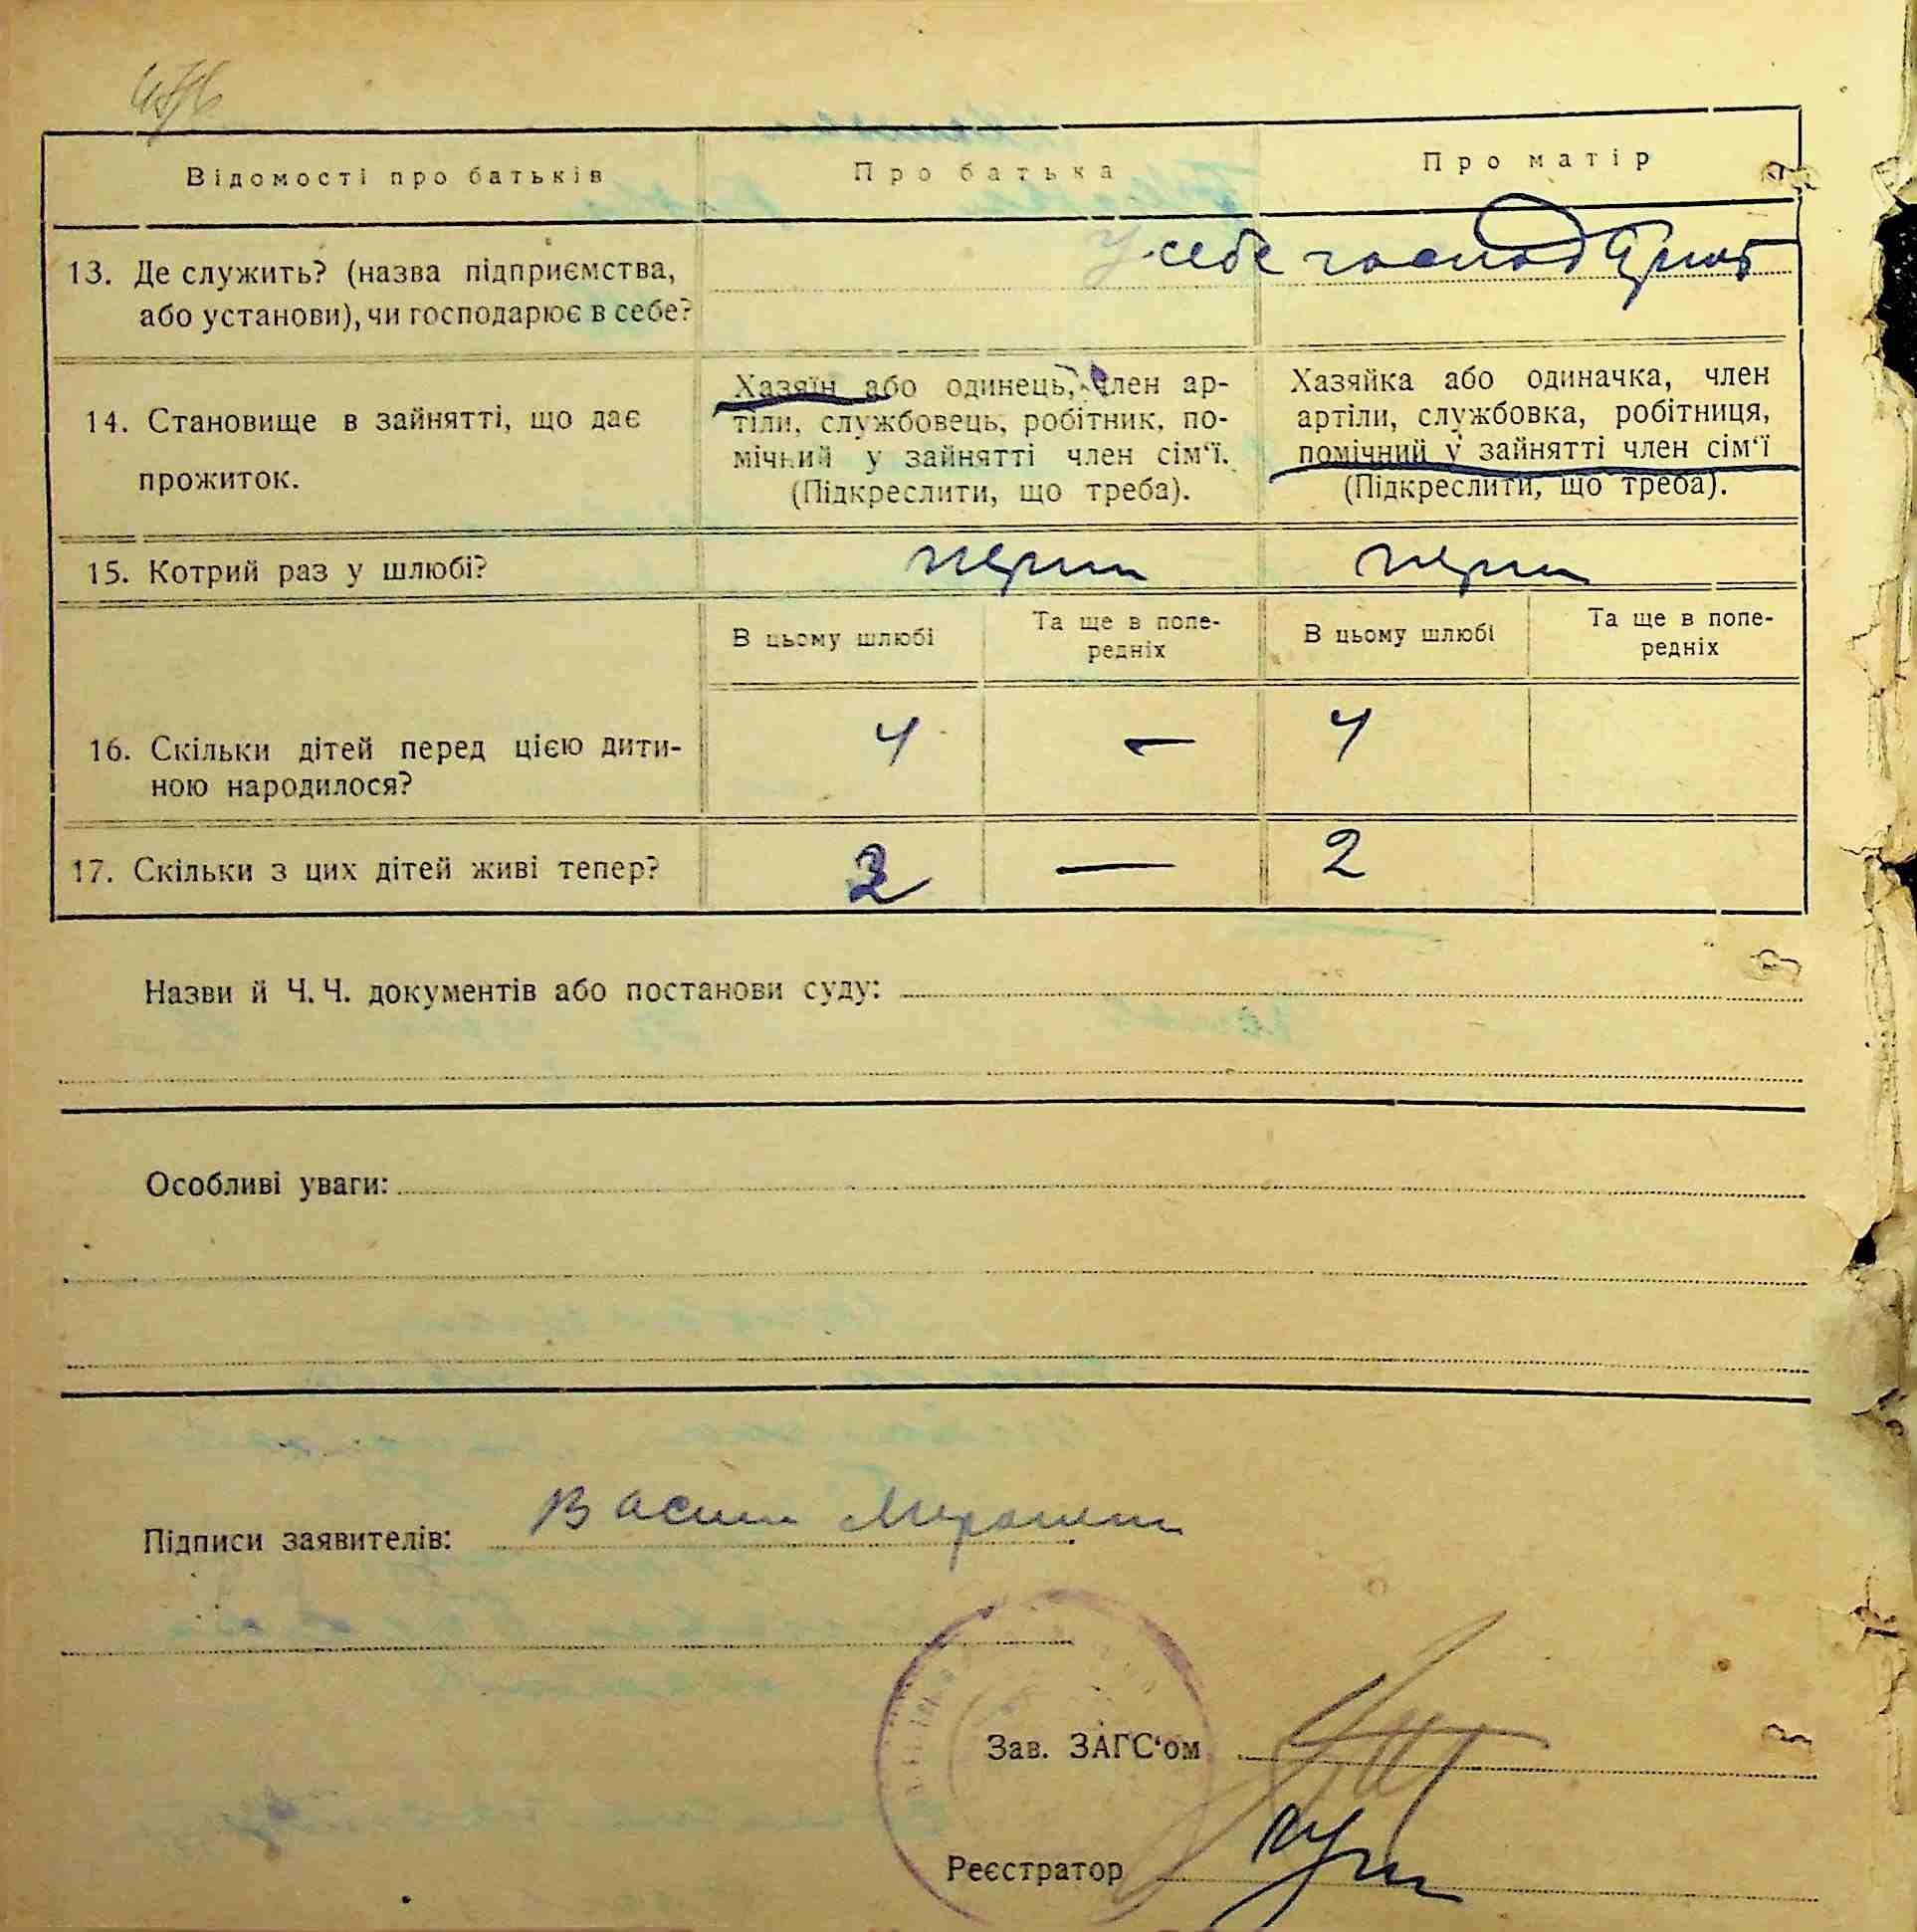 Відомості про батьків
Про батька
Про матір
13. Де служить? (назва підприємства,
або установи), чи господарює в себе?
у себе
14. Становище в зайнятті, що дає
прожиток.
Хазяїн або одинець, член ар-
тіли, службовець, робітник, по-
мічний у зайнятті член сім‘ї.
(Підкреслити, що треба).
Хазяйка або одиначка, член
артіли, службовка, робітниця,
помічний у зайнятті член сім‘ї
(Підкреслити, що треба).
15. Котрий раз у шлюбі?
перш
перш
В цьому шлюбі
Та ще в попе-
редніх
В цьому шлюбі
Та ще в попе-
редніх
16. Скільки дітей перед цією дити-
ною народилося?
4 — 4
17. Скільки з цих дітей живі тепер?
2 — 2
Назви й Ч. Ч. документів або постанови суду:
Особливі уваги:
Підписи заявителів:
Зав. ЗАГС‘ом
Реєстратор